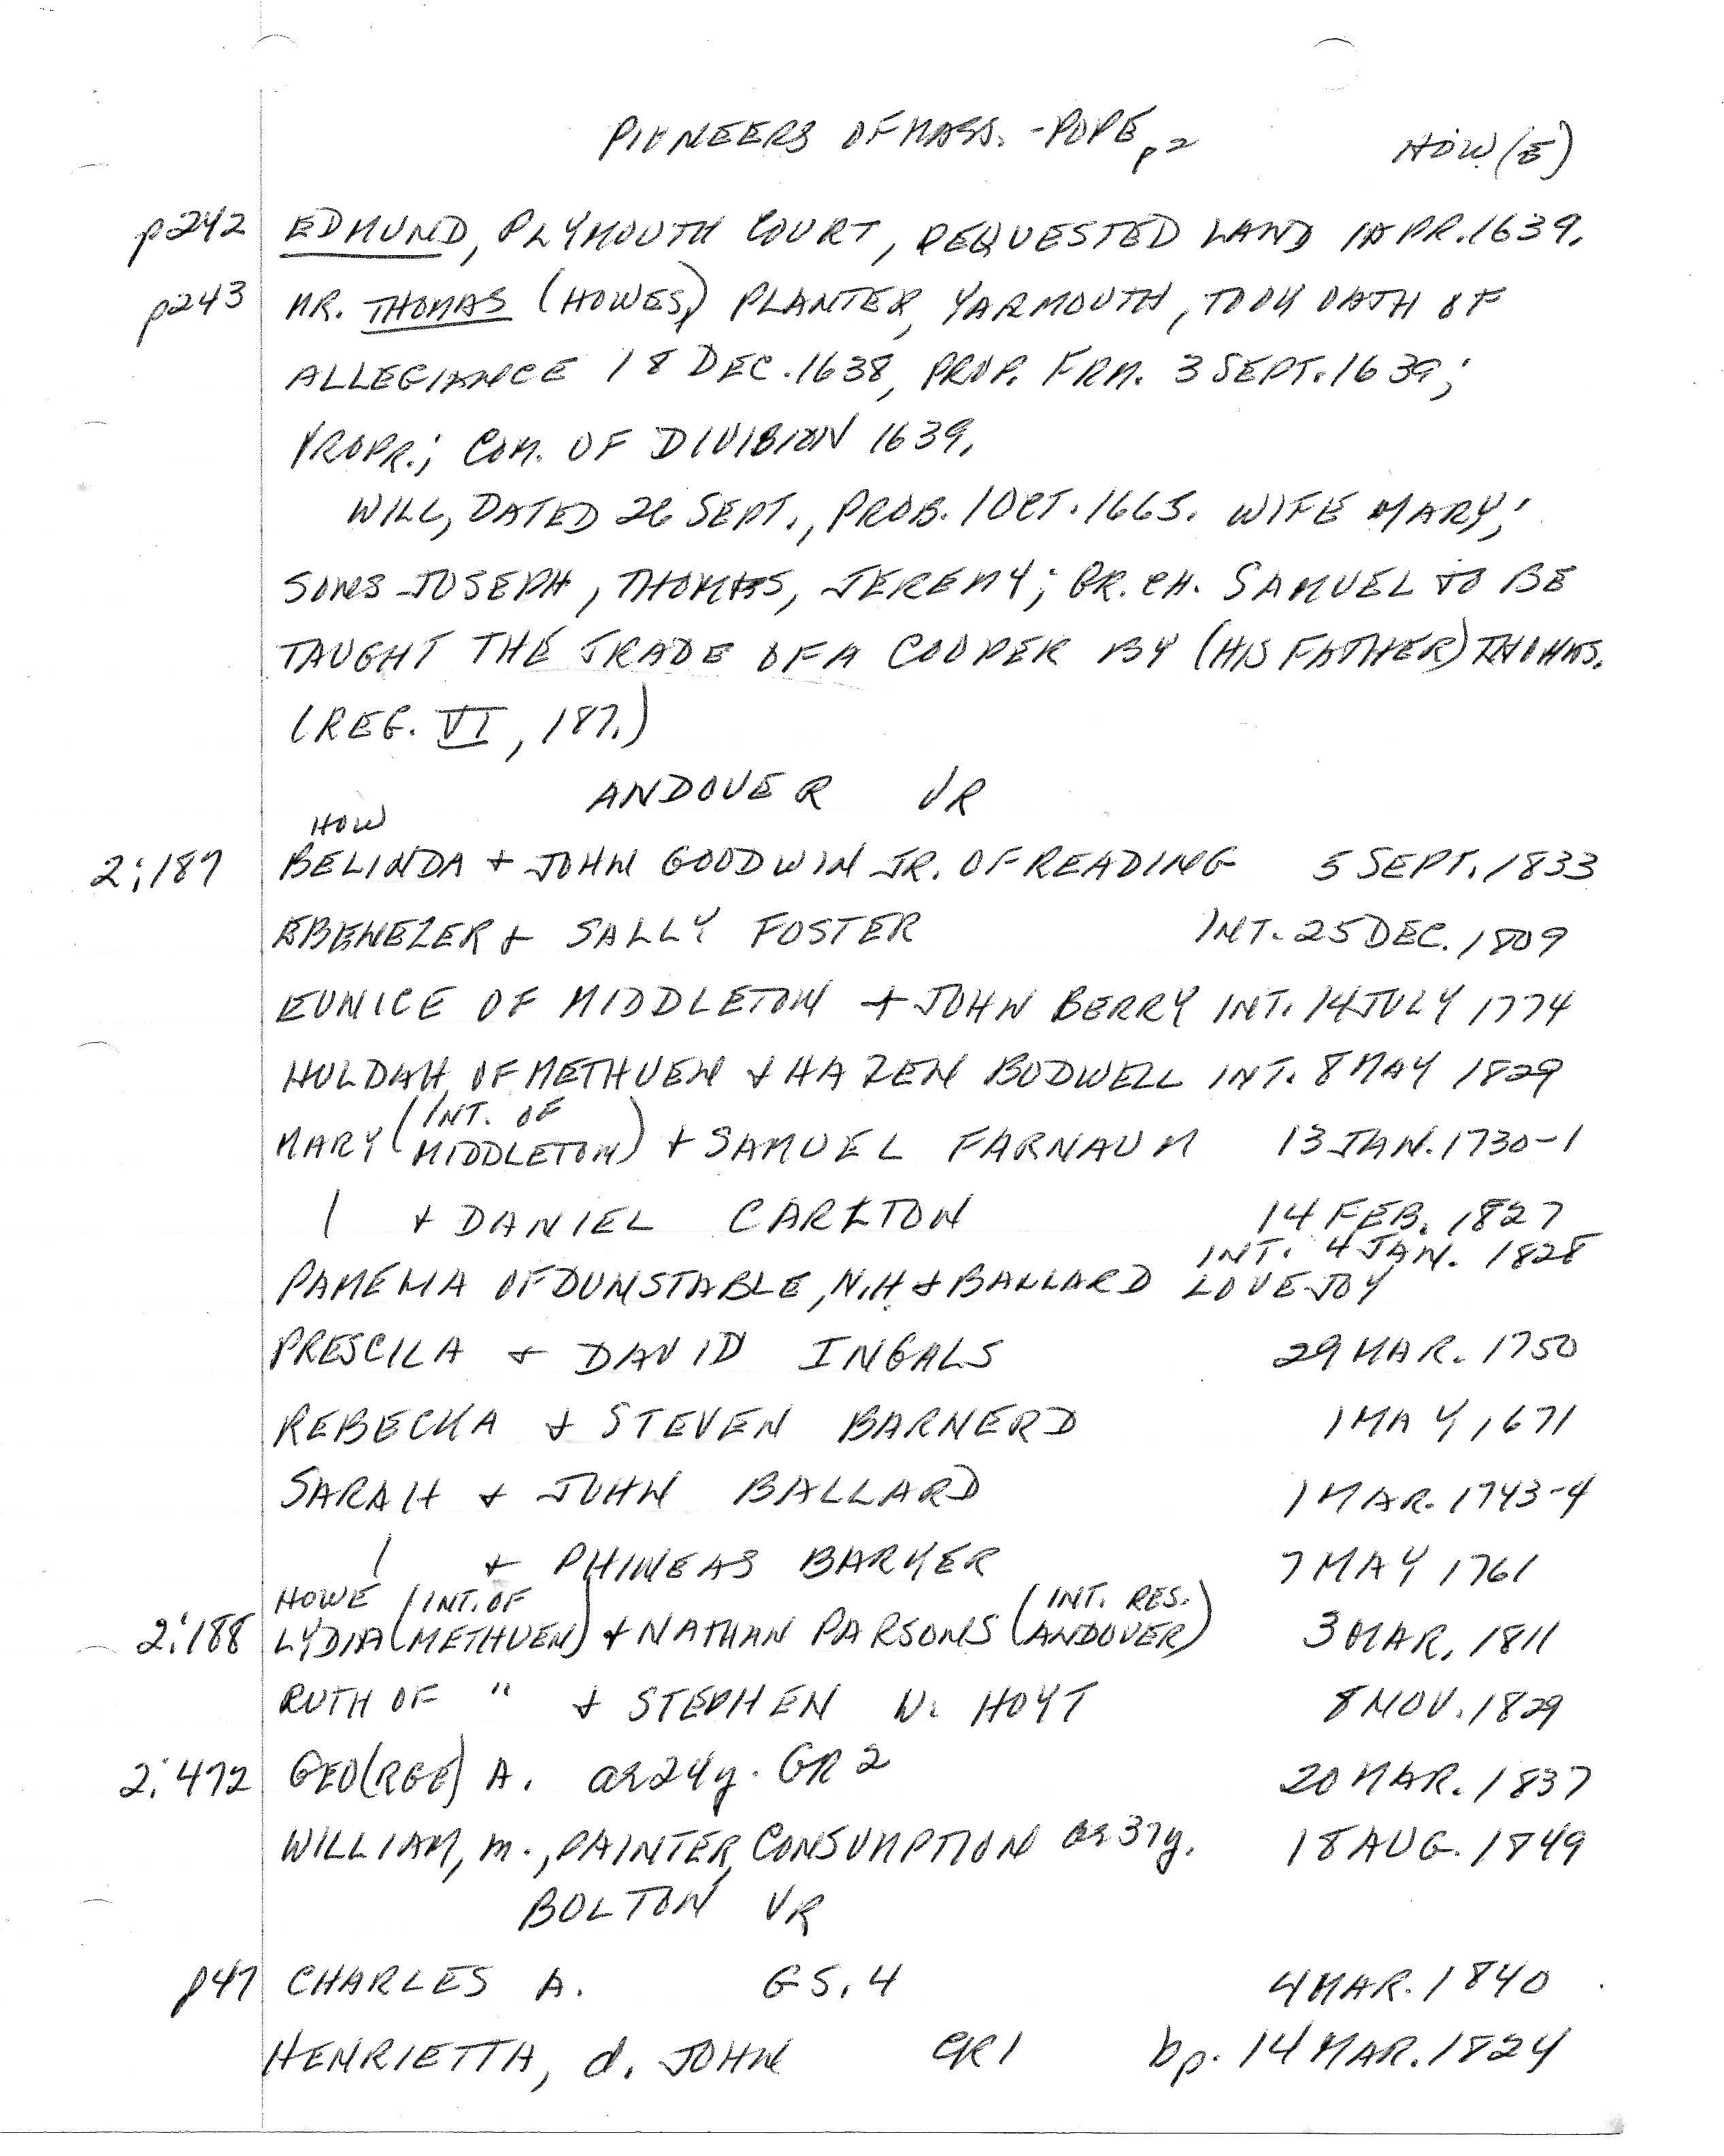 PIONEERS OF MASS. - POPE p2 HOW(E)
p242 EDMUND, PLYMOUTH COURT, REQUESTED LAND 1 APR. 1639.
p243 MR. THOMAS (HOWES,) PLANTER, YARMOUTH, TOOK OATH OF
ALLEGIANCE 18 DEC. 1638, PROP. FRM. 3 SEPT. 1639;
PROPR.; COM. OF DIVISION 1639.
WILL, DATED 26 SEPT., PROB. 1 OCT. 1665. WIFE MARY;
SONS JOSEPH, THOMAS, JEREMY; GR. CH. SAMUEL TO BE
TAUGHT THE TRADE OF A COOPER BY (HIS FATHER) THOMAS.
(REG. VI, 187.)
ANDOVER VR
HOW
2:187 BELINDA + JOHN GOODWIN JR. OF READING 5 SEPT. 1833
EBENEZER + SALLY FOSTER INT. 25 DEC. 1809
EUNICE OF MIDDLETON + JOHN BERRY INT. 14 JULY 1774
HULDAH OF METHUEN + HAZEN BODWELL INT. 8 MAY 1829
MARY (INT. OF MIDDLETON) + SAMUEL FARNAUM 13 JAN. 1730-1
| + DANIEL CARLTON 14 FEB. 1827
INT. 4 JAN. 1828
PAMELIA OF DUNSTABLE, N.H + BALLARD LOVEJOY
PRESCILA + DAVID INGALS 29 MAR. 1750
REBECKA + STEVEN BARNERD 1 MAY 1671
SARAH + JOHN BALLARD 1 MAR. 1743-4
| + PHINEAS BARKER 7 MAY 1761
HOWE
2:188 LYDIA (INT. OF METHUEN) + NATHAN PARSONS (INT. RES. ANDOVER) 3 MAR. 1811
RUTH OF " + STEPHEN W. HOYT 8 NOV. 1829
2:472 GEO(RGE) A. ae 24y. GR 2 20 MAR. 1837
WILLIAM, m., PAINTER, CONSUMPTION ae 37y. 18 AUG. 1849
BOLTON VR
p47 CHARLES A. GS. 4 4 MAR. 1840
HENRIETTA, d. JOHN CR1 bp. 14 MAR. 1824